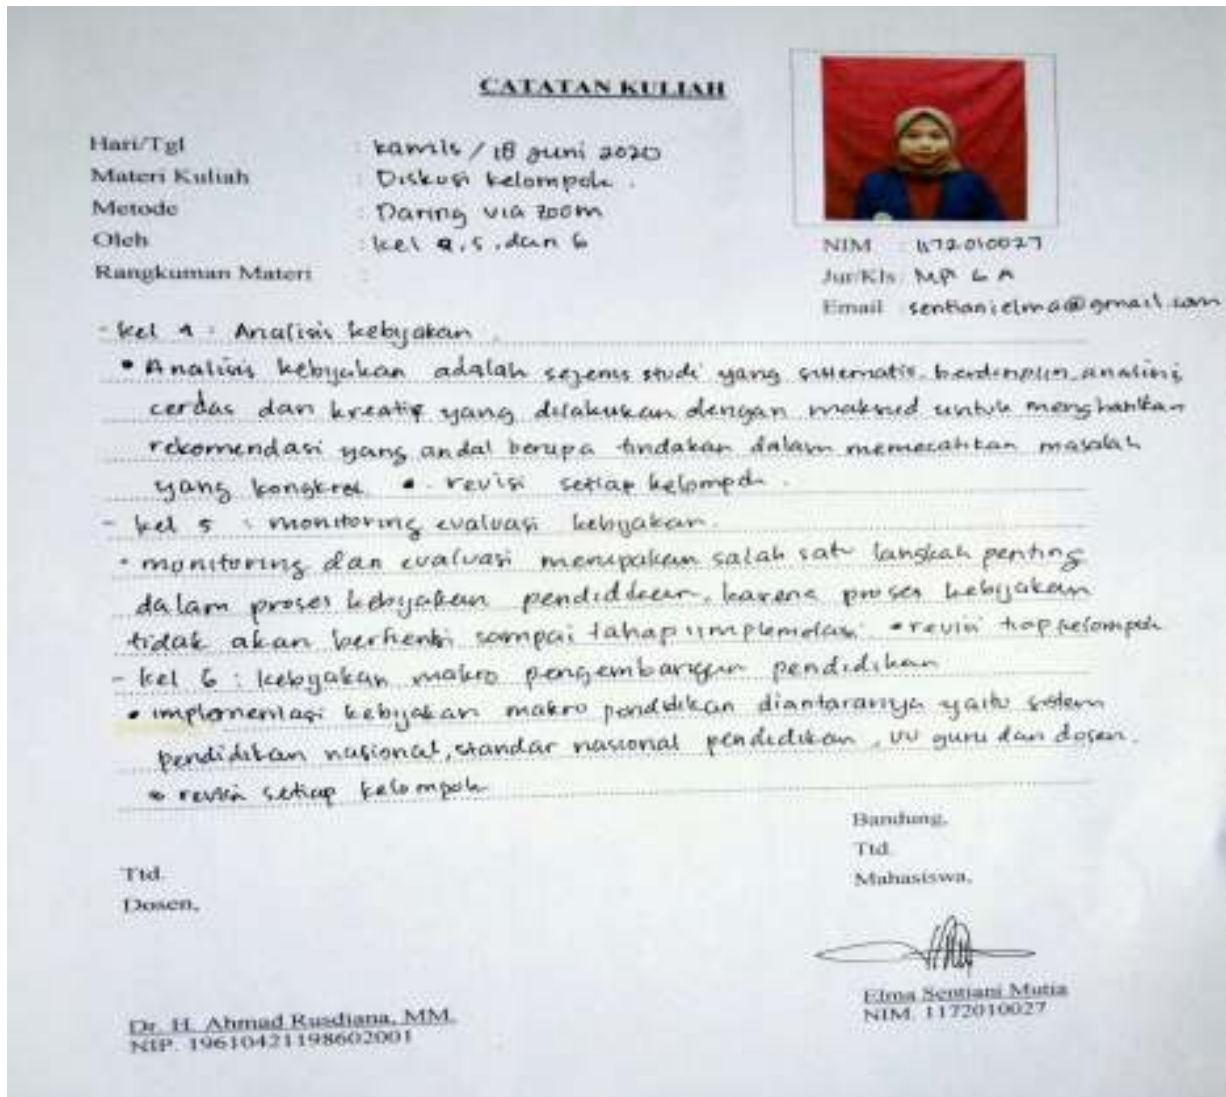 CATATAN KULIAH
Hari/Tgl : kamis / 18 Juni 2020
Materi Kuliah : Diskusi kelompok .
Metode : Daring via zoom
Oleh : kel 4, 5, dan 6
Rangkuman Materi :
NIM : 1172010027
Jur/Kls : MP 6 A
Email : sentianielma@gmail.com
- kel 4 : Analisis kebijakan .
• Analisis kebijakan adalah sejenis studi yang sistematis berdisiplin, analisis
cerdas dan kreatif yang dilakukan dengan maksud untuk menghasilkan
rekomendasi yang andal berupa tindakan dalam memecahkan masalah
yang kongkret • revisi setiap kelompok .
- kel 5 : monitoring evaluasi kebijakan .
• monitoring dan evaluasi merupakan salah satu langkah penting
dalam proses kebijakan pendidikan, karena proses kebijakan
tidak akan berhenti sampai tahap • revisi tiap kelompok
- kel 6 : kebijakan makro pengembangan pendidikan
• implementasi kebijakan makro pendidikan diantaranya yaitu sistem
pendidikan nasional, standar nasional pendidikan , UU guru dan dosen.
• revisi setiap kelompok
Bandung,
Ttd.
Mahasiswa,
Ttd.
Dosen,
Elma Sentiani Mutia
NIM. 1172010027
Dr. H. Ahmad Rusdiana, MM.
NIP. 19610421198602001